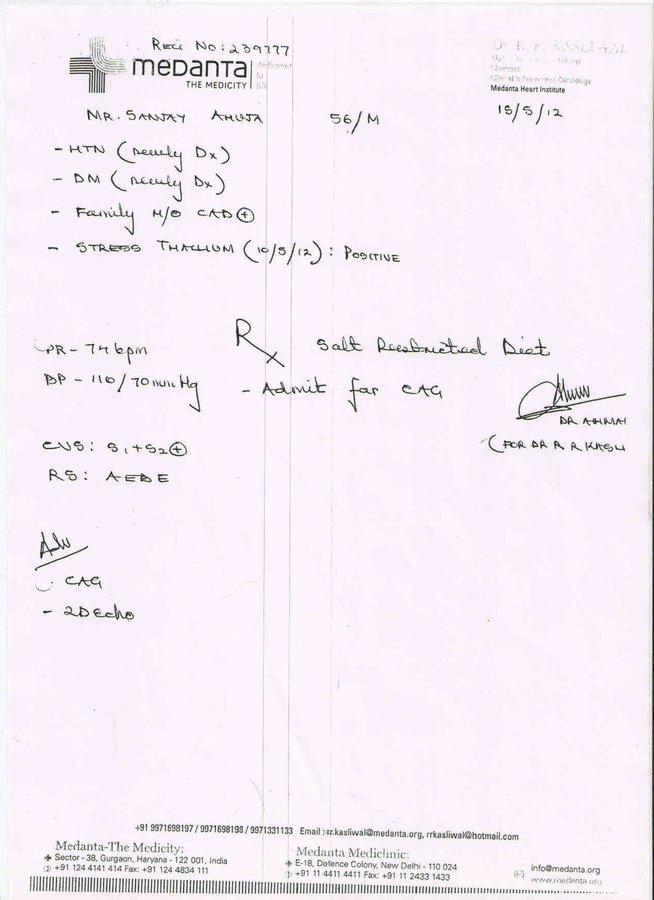 REG NO: 239777
medanta
THE MEDICITY
Dr. R. R. KASLIWAL
Chairman
Clinical & Preventive Cardiology
Medanta Heart Institute
MR. SANJAY AHUJA 56/M 15/5/12
- HTN (newly Dx)
- DM (newly Dx)
- Family H/O CAD (+)
- STRESS THALLIUM (10/5/12) : POSITIVE
PR - 74 bpm
BP - 110/70 mm Hg
CVS: S1+S2 (+)
RS: AEBE
Rx Salt Restricted Diet
- Admit for CAG
(FOR DR R R KASLI
Adv
- CAG
- 2D Echo
+91 9971698197 / 9971698198 / 9971331133 Email : rr.kasliwal@medanta.org, rrkasliwal@hotmail.com
Medanta-The Medicity:
Sector - 38, Gurgaon, Haryana - 122 001, India
+91 124 4141 414 Fax: +91 124 4834 111
Medanta Mediclinic:
E-18, Defence Colony, New Delhi - 110 024
+91 11 4411 4411 Fax: +91 11 2433 1433
info@medanta.org
www.medanta.org